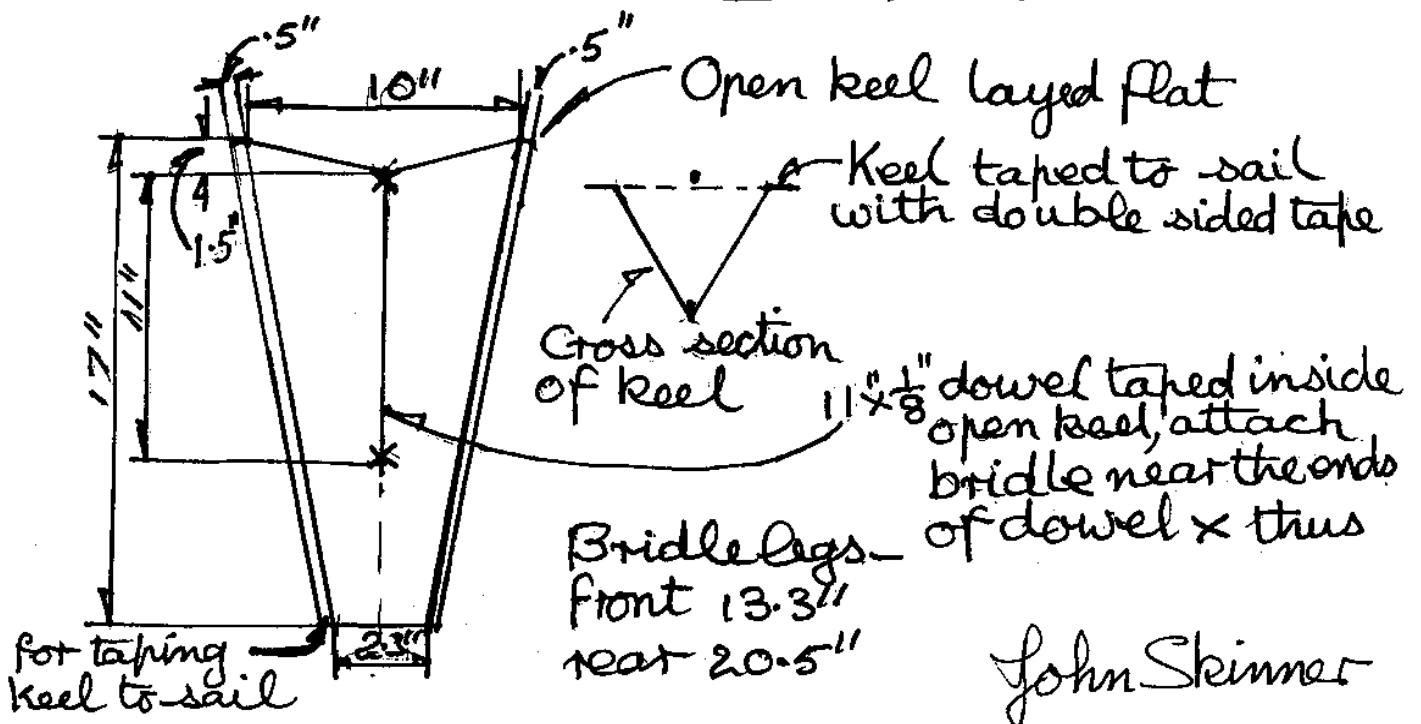 .5"
.5"
10"
Open keel layed flat
Keel taped to sail
with double sided tape
1.5"
11"
17"
Cross section
of keel
11"x1/8" dowel taped inside
open keel, attach
bridle near the ends
of dowel x thus
Bridle legs-
front 13.3"
rear 20.5"
for taping
keel to sail
2.3"
John Skinner